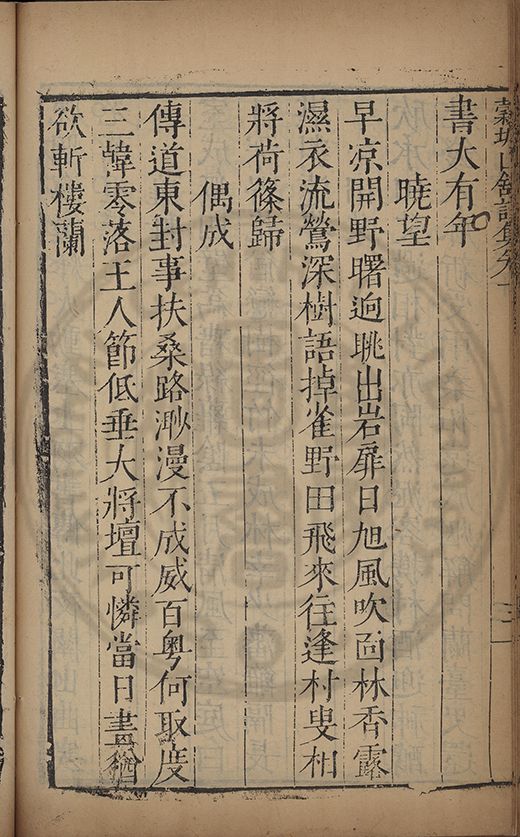 穀城山館詩集卷一
三
書大有年
曉望
早凉開野曙逈眺出岩扉日旭風吹𦥑林香露
濕衣流鶯深樹語掉雀野田飛來往逢村叟相
將荷篠歸
偶成
傳道東封事扶桑路渺漫不成威百粤何取度
三韓零落王人節低垂大將壇可憐當日晝猶
欲斬樓蘭